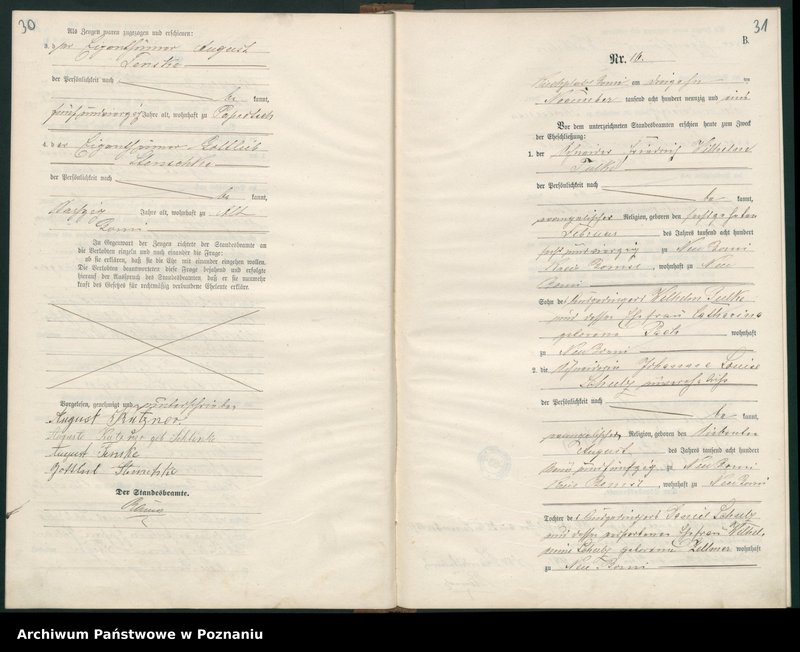 30
Als Zeugen waren zugezogen und erschienen:
3. der Eigenthümer August
Lenske
der Persönlichkeit nach
be kannt,
fünfundvierzig Jahre alt, wohnhaft zu Paprotsch
4. der Eigenthümer Gottlieb
der Persönlichkeit nach
be kannt,
Jahre alt, wohnhaft zu Alt
Borui
In Gegenwart der Zeugen richtete der Standesbeamte an
die Verlobten einzeln und nach einander die Frage:
ob sie erklären, daß sie die Ehe mit einander eingehen wollen.
Die Verlobten beantworteten diese Frage bejahend und erfolgte
hierauf der Ausspruch des Standesbeamten, daß er sie nunmehr
kraft des Gesetzes für rechtmäßig verbundene Eheleute erkläre.
Vorgelesen, genehmigt und unterschrieben
August Kutzner.
Auguste Kutzner geb Schlinke
August Lenske
Gottlieb
Der Standesbeamte.
31
B.
Nr. 14.
am ten
November tausend acht hundert neunzig und eins
Vor dem unterzeichneten Standesbeamten erschien heute zum Zweck
der Eheschließung:
1. der Schneider Friedrich Wilhelm
der Persönlichkeit nach
be kannt,
evangelischer Religion, geboren den sechszehnten
Februar des Jahres tausend acht hundert
sechsundvierzig zu Neu Borui
Kreis Bomst, wohnhaft zu Neu
Borui
Sohn des Wilhelm
und dessen Ehefrau Catharina
geborene wohnhaft
zu Neu Borui
2. die Johanne Louise
Schulz
der Persönlichkeit nach
be kannt,
evangelischer Religion, geboren den siebenten
August des Jahres tausend acht hundert
fünfzig zu Neu Borui
Kreis Bomst, wohnhaft zu Neu Borui
Tochter des Daniel Schulz
und dessen Ehefrau Wilhel-
mine Schulz geborene Zellmer wohnhaft
zu Neu Borui
Archiwum Państwowe w Poznaniu